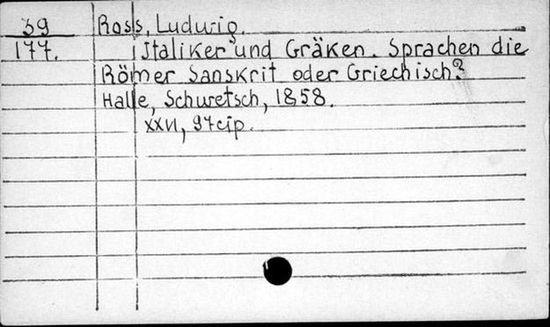 39 Ross, Ludwig.
177. Italiker und Gräken. Sprachen die
Römer Sanskrit oder Griechisch?
Halle, Schwetsch, 1858.
XXVI, 97